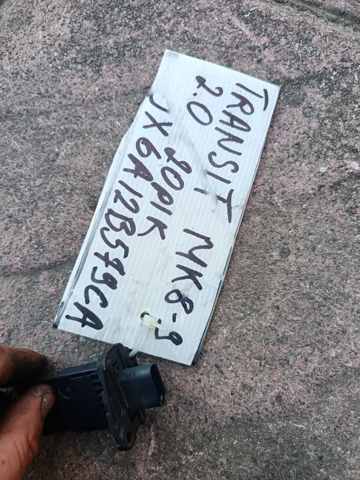 TRANSIT MK8-9
2.0 20PIK
JX6A12B579CA